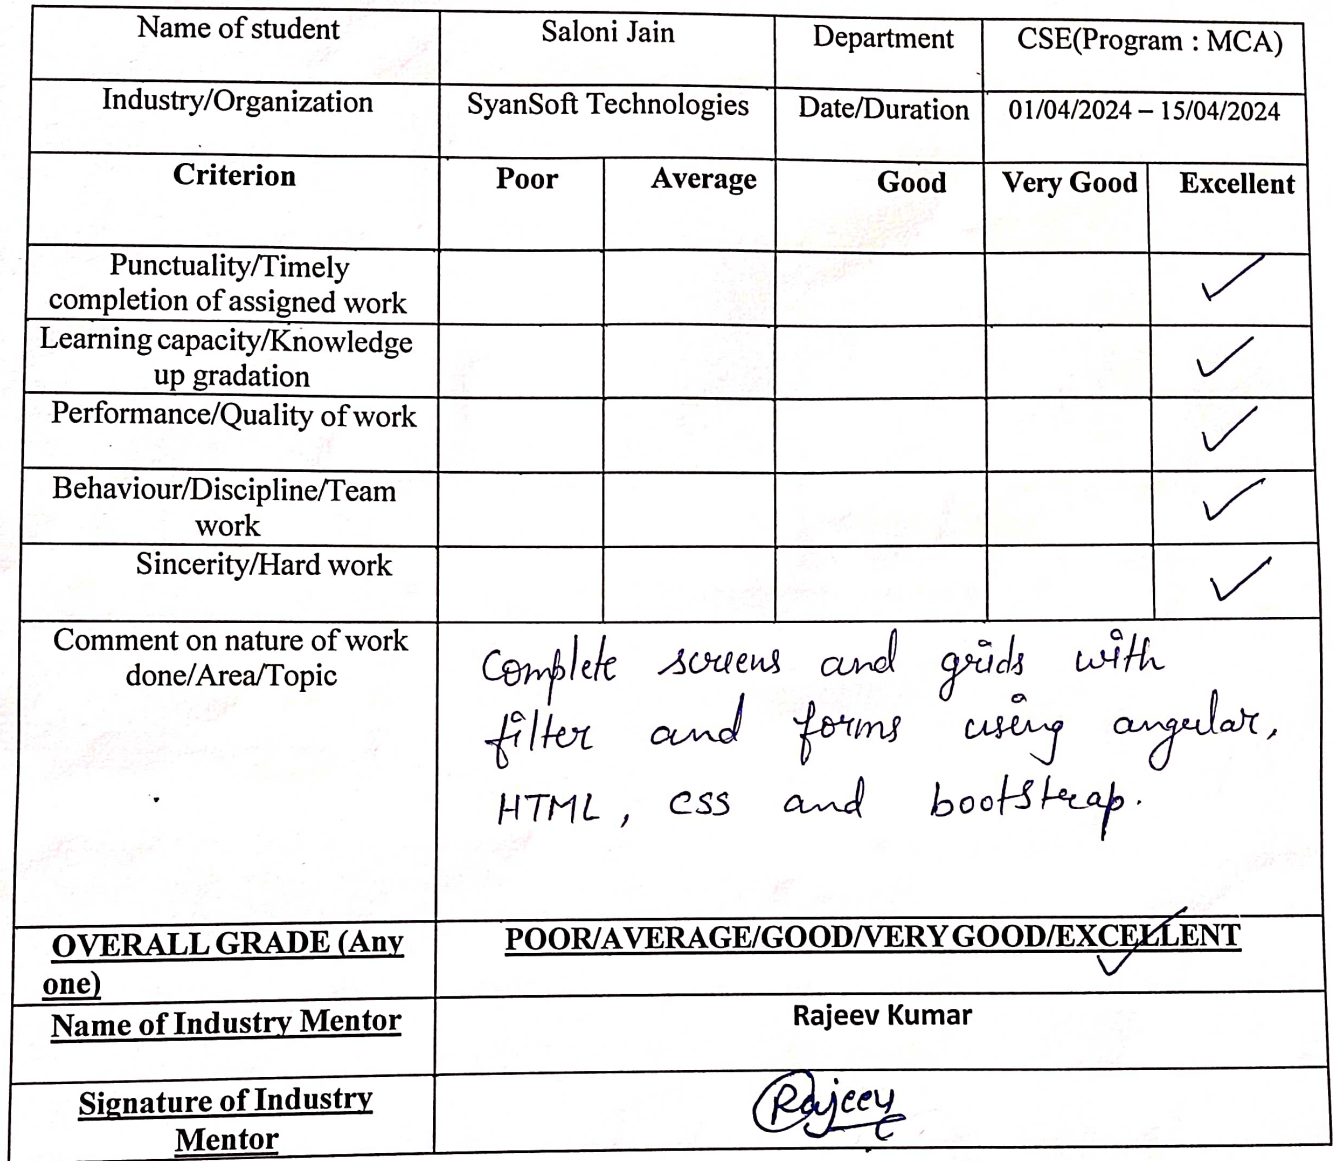 Name of student Saloni Jain Department CSE(Program : MCA)
Industry/Organization SyanSoft Technologies Date/Duration 01/04/2024 – 15/04/2024
Criterion Poor Average Good Very Good Excellent
Punctuality/Timely
completion of assigned work ✓
Learning capacity/Knowledge
up gradation ✓
Performance/Quality of work ✓
Behaviour/Discipline/Team
work ✓
Sincerity/Hard work ✓
Comment on nature of work
done/Area/Topic
Complete screens and grids with
filter and forms using angular,
HTML, CSS and bootstrap.
OVERALL GRADE (Any
one)
POOR/AVERAGE/GOOD/VERY GOOD/EXCELLENT ✓
Name of Industry Mentor Rajeev Kumar
Signature of Industry
Mentor
Rajeev